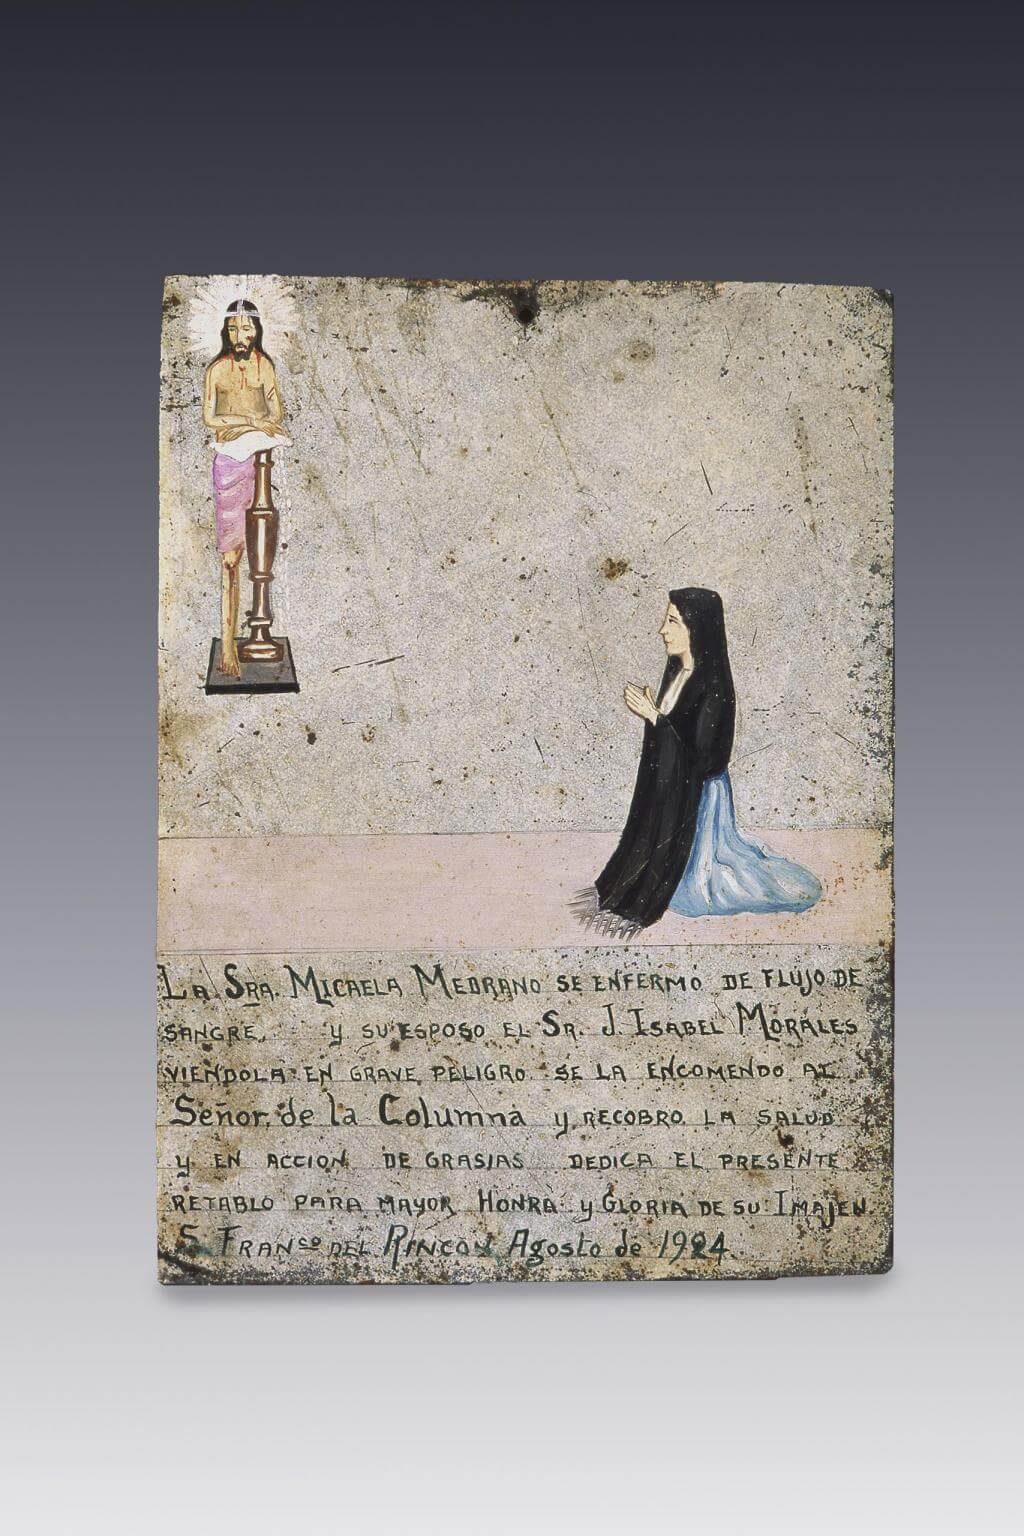 La Sra. Micaela Medrano se enfermó de flujo de
sangre, y su esposo el Sr. J. Isabel Morales
viendola en grave peligro se la encomendo al
Señor de la Columna y recobro la salud
y en accion de grasias dedica el presente
retablo para mayor Honra y Gloria de su Imajen.
S. Franco del Rincon, Agosto de 1924.